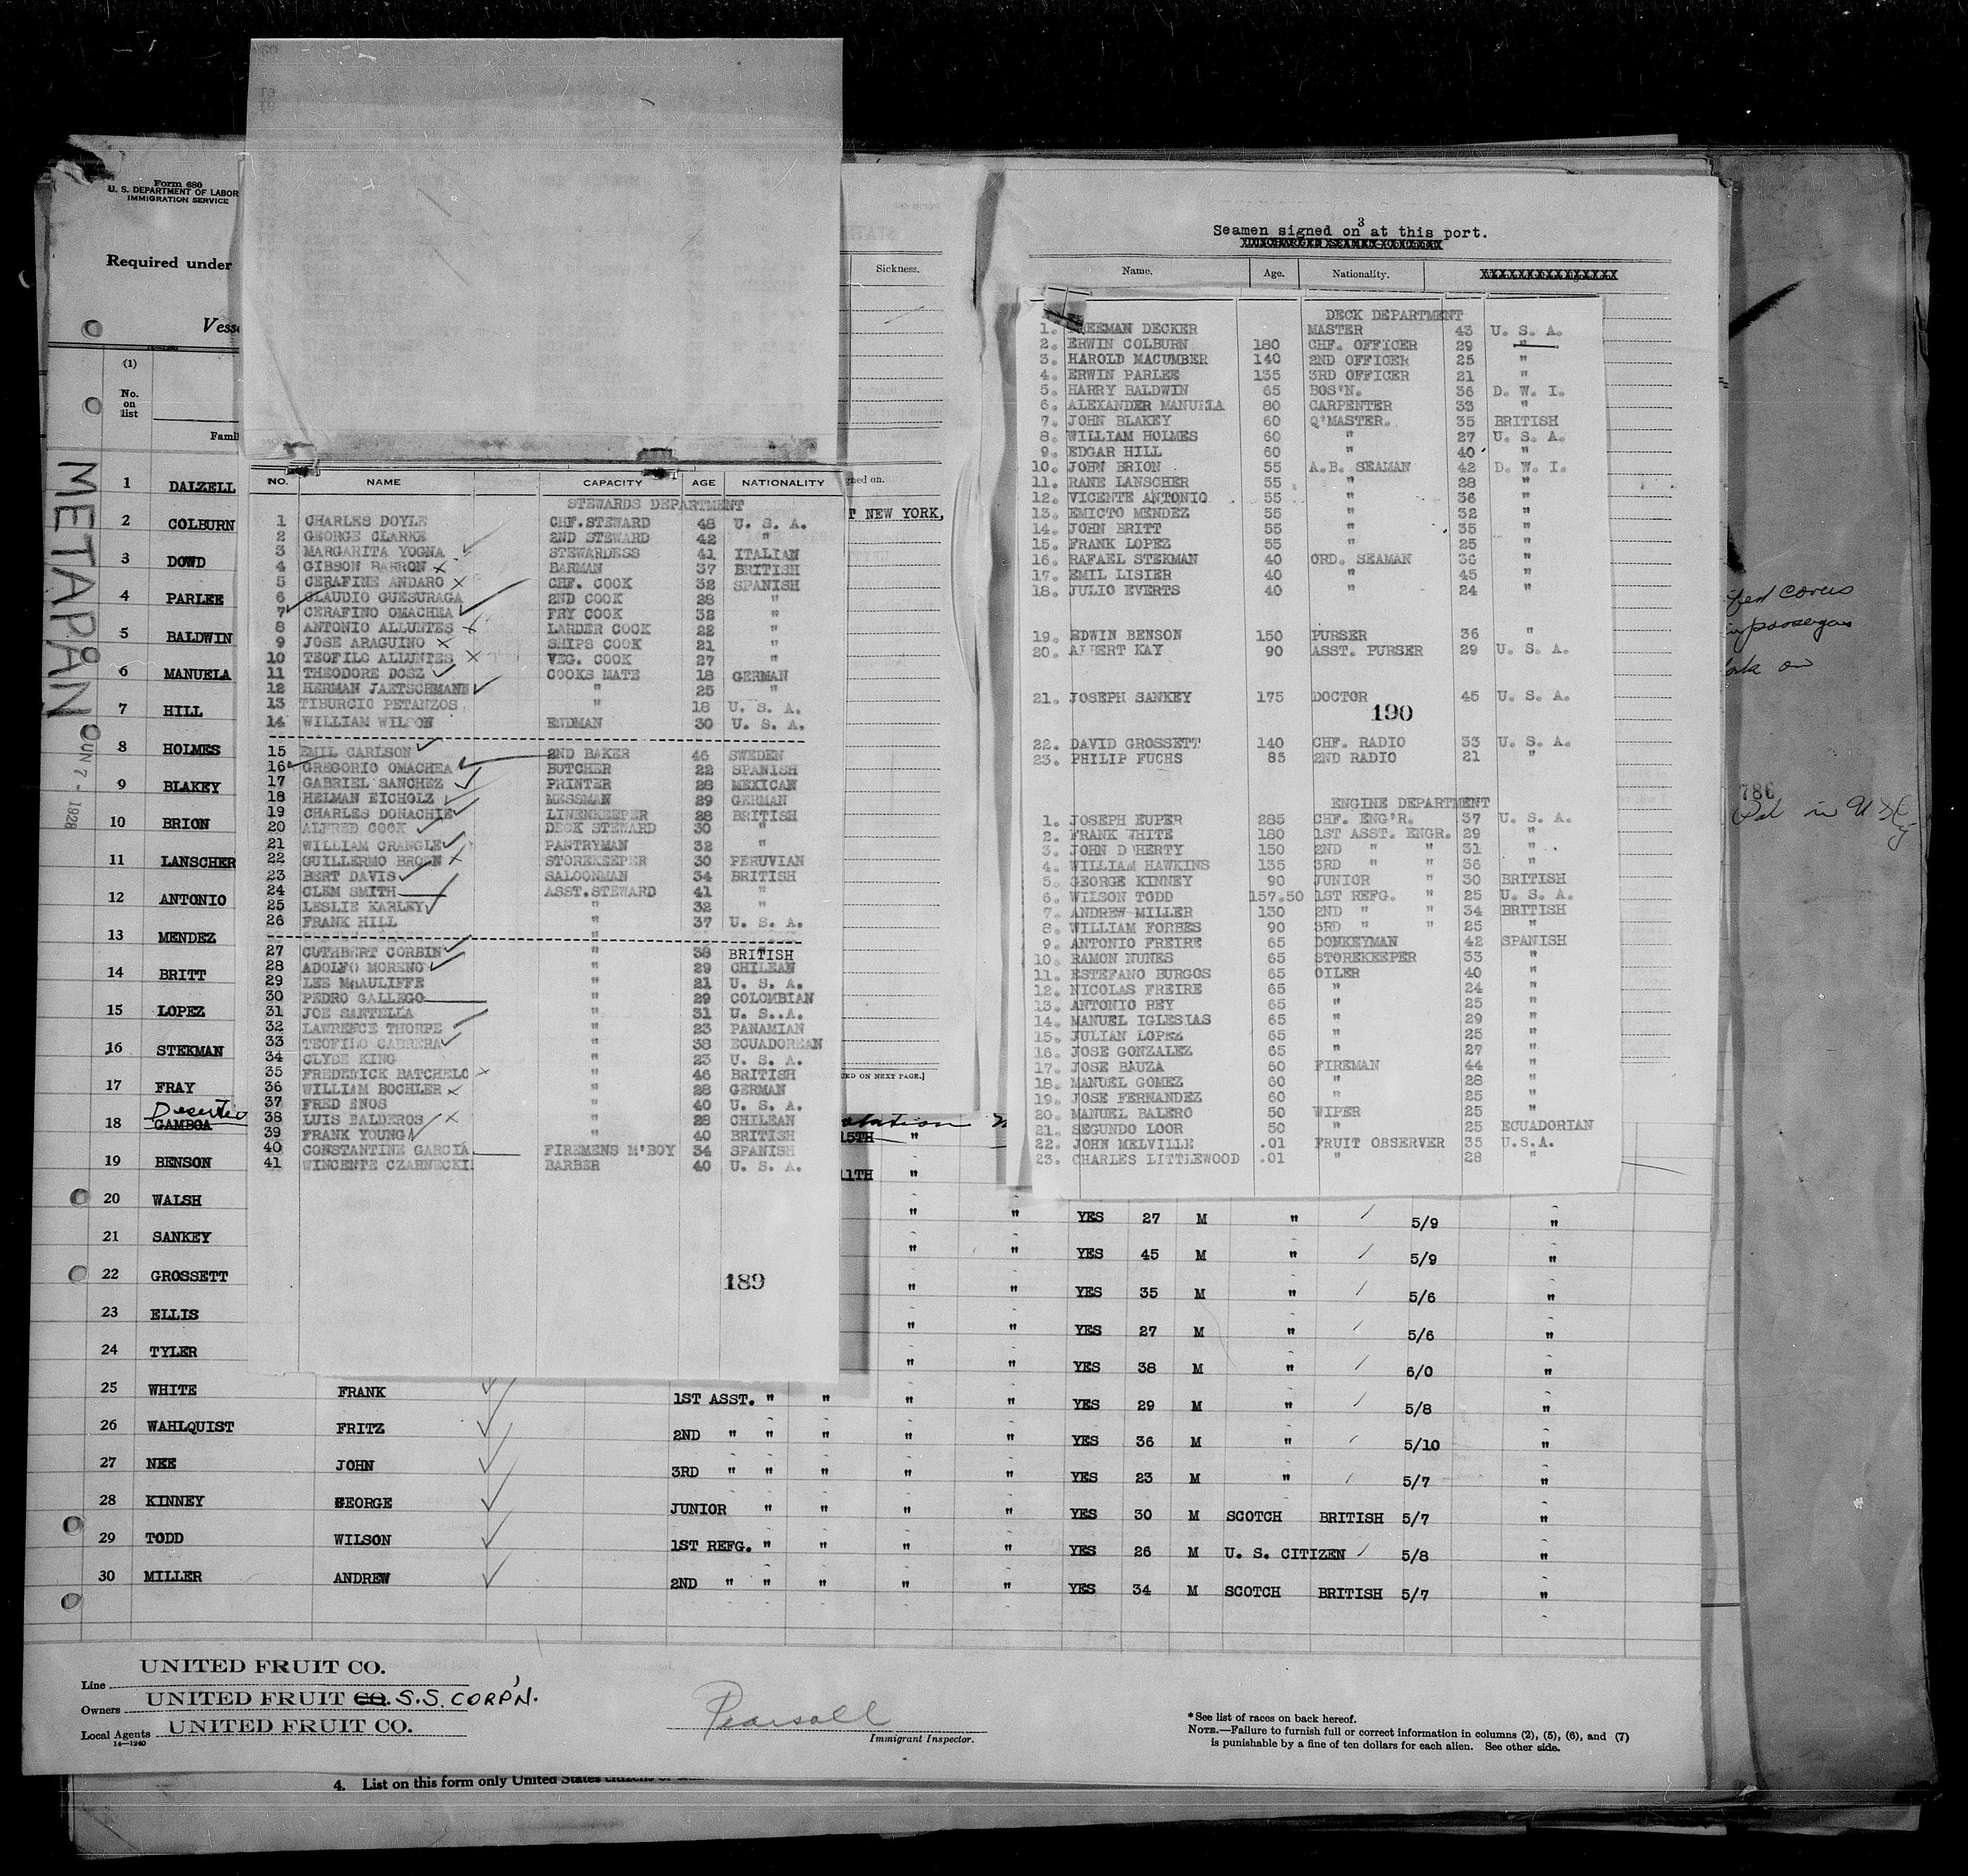 Form 680
U. S. DEPARTMENT OF LABOR
IMMIGRATION SERVICE
Required under
(1)
No.
on
list
METAPAN
UN 7 - 1928
1 DALZELL
2 COLBURN
3 DOWD
4 PARLEE
5 BALDWIN
6 MANUELA
7 HILL
8 HOLMES
9 BLAKEY
10 BRION
11 LANSCHER
12 ANTONIO
13 MENDEZ
14 BRITT
15 LOPEZ
16 STEKMAN
17 FRAY
18 GAMBOA
19 BENSON
20 WALSH
21 SANKEY
22 GROSSETT
23 ELLIS
24 TYLER
NO. NAME CAPACITY AGE NATIONALITY
STEWARDS DEPARTMENT
1 CHARLES DOYLE CHF. STEWARD 48 U. S. A.
2 GEORGE CLARKE 2ND STEWARD 42 "
3 MARGARITA YOGNA STEWARDESS 41 ITALIAN
4 GIBSON BARRON x BARMAN 37 BRITISH
5 CERAFINE ANDARO x CHF. COOK 32 SPANISH
6 CLAUDIO GUESURAGA 2ND COOK 28 "
7 CERAFINO OMACHEA FRY COOK 32 "
8 ANTONIO ALLUNTES x LARDER COOK 22 "
9 JOSE ARAGUINO x SHIPS COOK 21 "
10 TEOFILO ALLUNTES x VEG. COOK 27 "
11 THEODORE DOSZ COOKS MATE 18 GERMAN
12 HERMAN JAETSCHMANN " 25 "
13 TIBURCIO PETANZOS " 18 U. S. A.
14 WILLIAM WILSON ENDMAN 30 U. S. A.
15 EMIL CARLSON 2ND BAKER 46 SWEDEN
16 GREGORIO OMACHEA BUTCHER 22 SPANISH
17 GABRIEL SANCHEZ PRINTER 28 MEXICAN
18 HELMAN EICHOLZ MESSMAN 29 GERMAN
19 CHARLES DONACHIE LINENKEEPER 28 BRITISH
20 ALFRED COOK DECK STEWARD 30 "
21 WILLIAM CRANGLE PANTRYMAN 32 "
22 GUILLERMO BROWN x STOREKEEPER 30 PERUVIAN
23 BERT DAVIS SALOONMAN 34 BRITISH
24 CLEM SMITH ASST. STEWARD 41 "
25 LESLIE KARLEY " 32 "
26 FRANK HILL " 37 U. S. A.
27 CUTHBERT CORBIN " 38 BRITISH
28 ADOLFO MORENO " 29 CHILEAN
29 LEE McAULIFFE " 21 U. S. A.
30 PEDRO GALLEGO " 29 COLOMBIAN
31 JOE SANTELLA " 31 U. S. A.
32 LAWRENCE THORPE " 23 PANAMIAN
33 TEOFILO CABRERA " 38 ECUADOREAN
34 CLYDE KING " 23 U. S. A.
35 FREDERICK BATCHELO x " 46 BRITISH
36 WILLIAM BOCHLER x " 28 GERMAN
37 FRED ENOS " 40 U. S. A.
38 LUIS BALDEROS x " 28 CHILEAN
39 FRANK YOUNG " 40 BRITISH
40 CONSTANTINE GARCIA FIREMENS M'BOY 34 SPANISH
41 WINCENTE CZARNECKI BARBER 40 U. S. A.
189
Sickness.
NEW YORK,
ED ON NEXT PAGE.]
15TH "
11TH "
3
Seamen signed on at this port.
Name. Age. Nationality. XXXXXXXXXXXXXXXX
DECK DEPARTMENT
1. FREEMAN DECKER MASTER 43 U. S. A.
2. ERWIN COLBURN 180 CHF. OFFICER 29 "
3. HAROLD MACUMBER 140 2ND OFFICER 25 "
4. ERWIN PARLEE 135 3RD OFFICER 21 "
5. HARRY BALDWIN 65 BOS'N. 36 D. W. I.
6. ALEXANDER MANUELA 80 CARPENTER 33 "
7. JOHN BLAKEY 60 Q'MASTER. 35 BRITISH
8. WILLIAM HOLMES 60 " 27 U. S. A.
9. EDGAR HILL 60 " 40 "
10. JOHN BRION 55 A.B. SEAMAN 42 D. W. I.
11. RANE LANSCHER 55 " 28 "
12. VICENTE ANTONIO 55 " 36 "
13. EMICTO MENDEZ 55 " 32 "
14. JOHN BRITT 55 " 35 "
15. FRANK LOPEZ 55 " 25 "
16. RAFAEL STEKMAN 40 ORD. SEAMAN 36 "
17. EMIL LISIER 40 " 45 "
18. JULIO EVERTS 40 " 24 "
19. EDWIN BENSON 150 PURSER 36 "
20. ALBERT KAY 90 ASST. PURSER 29 U. S. A.
21. JOSEPH SANKEY 175 DOCTOR 45 U. S. A.
190
22. DAVID GROSSETT 140 CHF. RADIO 33 U. S. A.
23. PHILIP FUCHS 85 2ND RADIO 21 "
ENGINE DEPARTMENT
1. JOSEPH EUPER 285 CHF. ENG'R. 37 U. S. A.
2. FRANK WHITE 180 1ST ASST. ENGR. 29 "
3. JOHN D'HERTY 150 2ND " " 31 "
4. WILLIAM HAWKINS 135 3RD " " 36 "
5. GEORGE KINNEY 90 JUNIOR " 30 BRITISH
6. WILSON TODD 157.50 1ST REFG. " 25 U. S. A.
7. ANDREW MILLER 130 2ND " " 34 BRITISH
8. WILLIAM FORBES 90 3RD " " 25 "
9. ANTONIO FREIRE 65 DONKEYMAN 42 SPANISH
10. RAMON NUNES 65 STOREKEEPER 33 "
11. ESTEFANO BURGOS 65 OILER 40 "
12. NICOLAS FREIRE 65 " 24 "
13. ANTONIO REY 65 " 25 "
14. MANUEL IGLESIAS 65 " 29 "
15. JULIAN LOPEZ 65 " 25 "
16. JOSE GONZALEZ 65 " 27 "
17. JOSE BAUZA 60 FIREMAN 44 "
18. MANUEL GOMEZ 60 " 28 "
19. JOSE FERNANDEZ 60 " 25 "
20. MANUEL BALERO 50 WIPER 25 "
21. SEGUNDO LOOR 50 " 25 ECUADORIAN
22. JOHN MELVILLE .01 FRUIT OBSERVER 35 U.S.A.
23. CHARLES LITTLEWOOD .01 " 28 "
" " YES 27 M " 5/9 "
" " YES 45 M " 5/9 "
" " YES 35 M " 5/6 "
" " YES 27 M " 5/6 "
" " YES 38 M " 6/0 "
25 WHITE FRANK 1ST ASST. " " " " YES 29 M " 5/8 "
26 WAHLQUIST FRITZ 2ND " " " " " YES 36 M " 5/10 "
27 NEE JOHN 3RD " " " " " YES 23 M " 5/7 "
28 KINNEY GEORGE JUNIOR " " " " YES 30 M SCOTCH BRITISH 5/7 "
29 TODD WILSON 1ST REFG. " " " " YES 26 M U. S. CITIZEN 5/8 "
30 MILLER ANDREW 2ND " " " " " YES 34 M SCOTCH BRITISH 5/7 "
786
Line UNITED FRUIT CO.
Owners UNITED FRUIT CO. S.S. CORP'N.
Local Agents UNITED FRUIT CO.
14—1240
Pearsall
Immigrant Inspector.
*See list of races on back hereof.
NOTE.—Failure to furnish full or correct information in columns (2), (5), (6), and (7)
is punishable by a fine of ten dollars for each alien. See other side.
4. List on this form only United States citizens